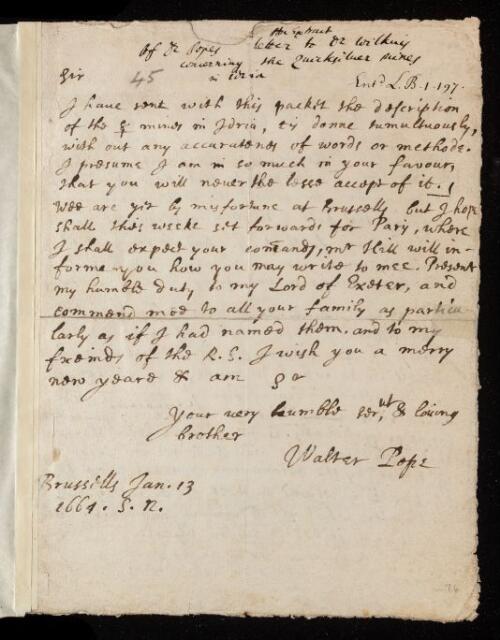 An Extract
Of Dr Popes letter to Dr Wilkins
concerning the Quicksilver mines
in Idria
Sir 45 Entd L.B.1.197.
I have sent with this packet the description
of the ☿ mines in Idria, tis donne tumultuously,
with out any accuratenes of words or methode.
I presume I am in so much in your favour,
that you will never the lesse accept of it.
Wee are yet by misfortune at Brussells, but I hope
shall this weeke set forwards for Pary, where
I shall expect your com̄ands, mr Hill will in-
forme you how you may write to mee. Present
my humble duty to my Lord of Exeter, and
commend mee to all your family as particu
larly as if I had named them. and to my
freinds of the R.S. I wish you a merry
new yeare & am Sr
Your very humble servt, & loving
brother
Walter Pope
Brussells Jan. 13
1664. S. N.